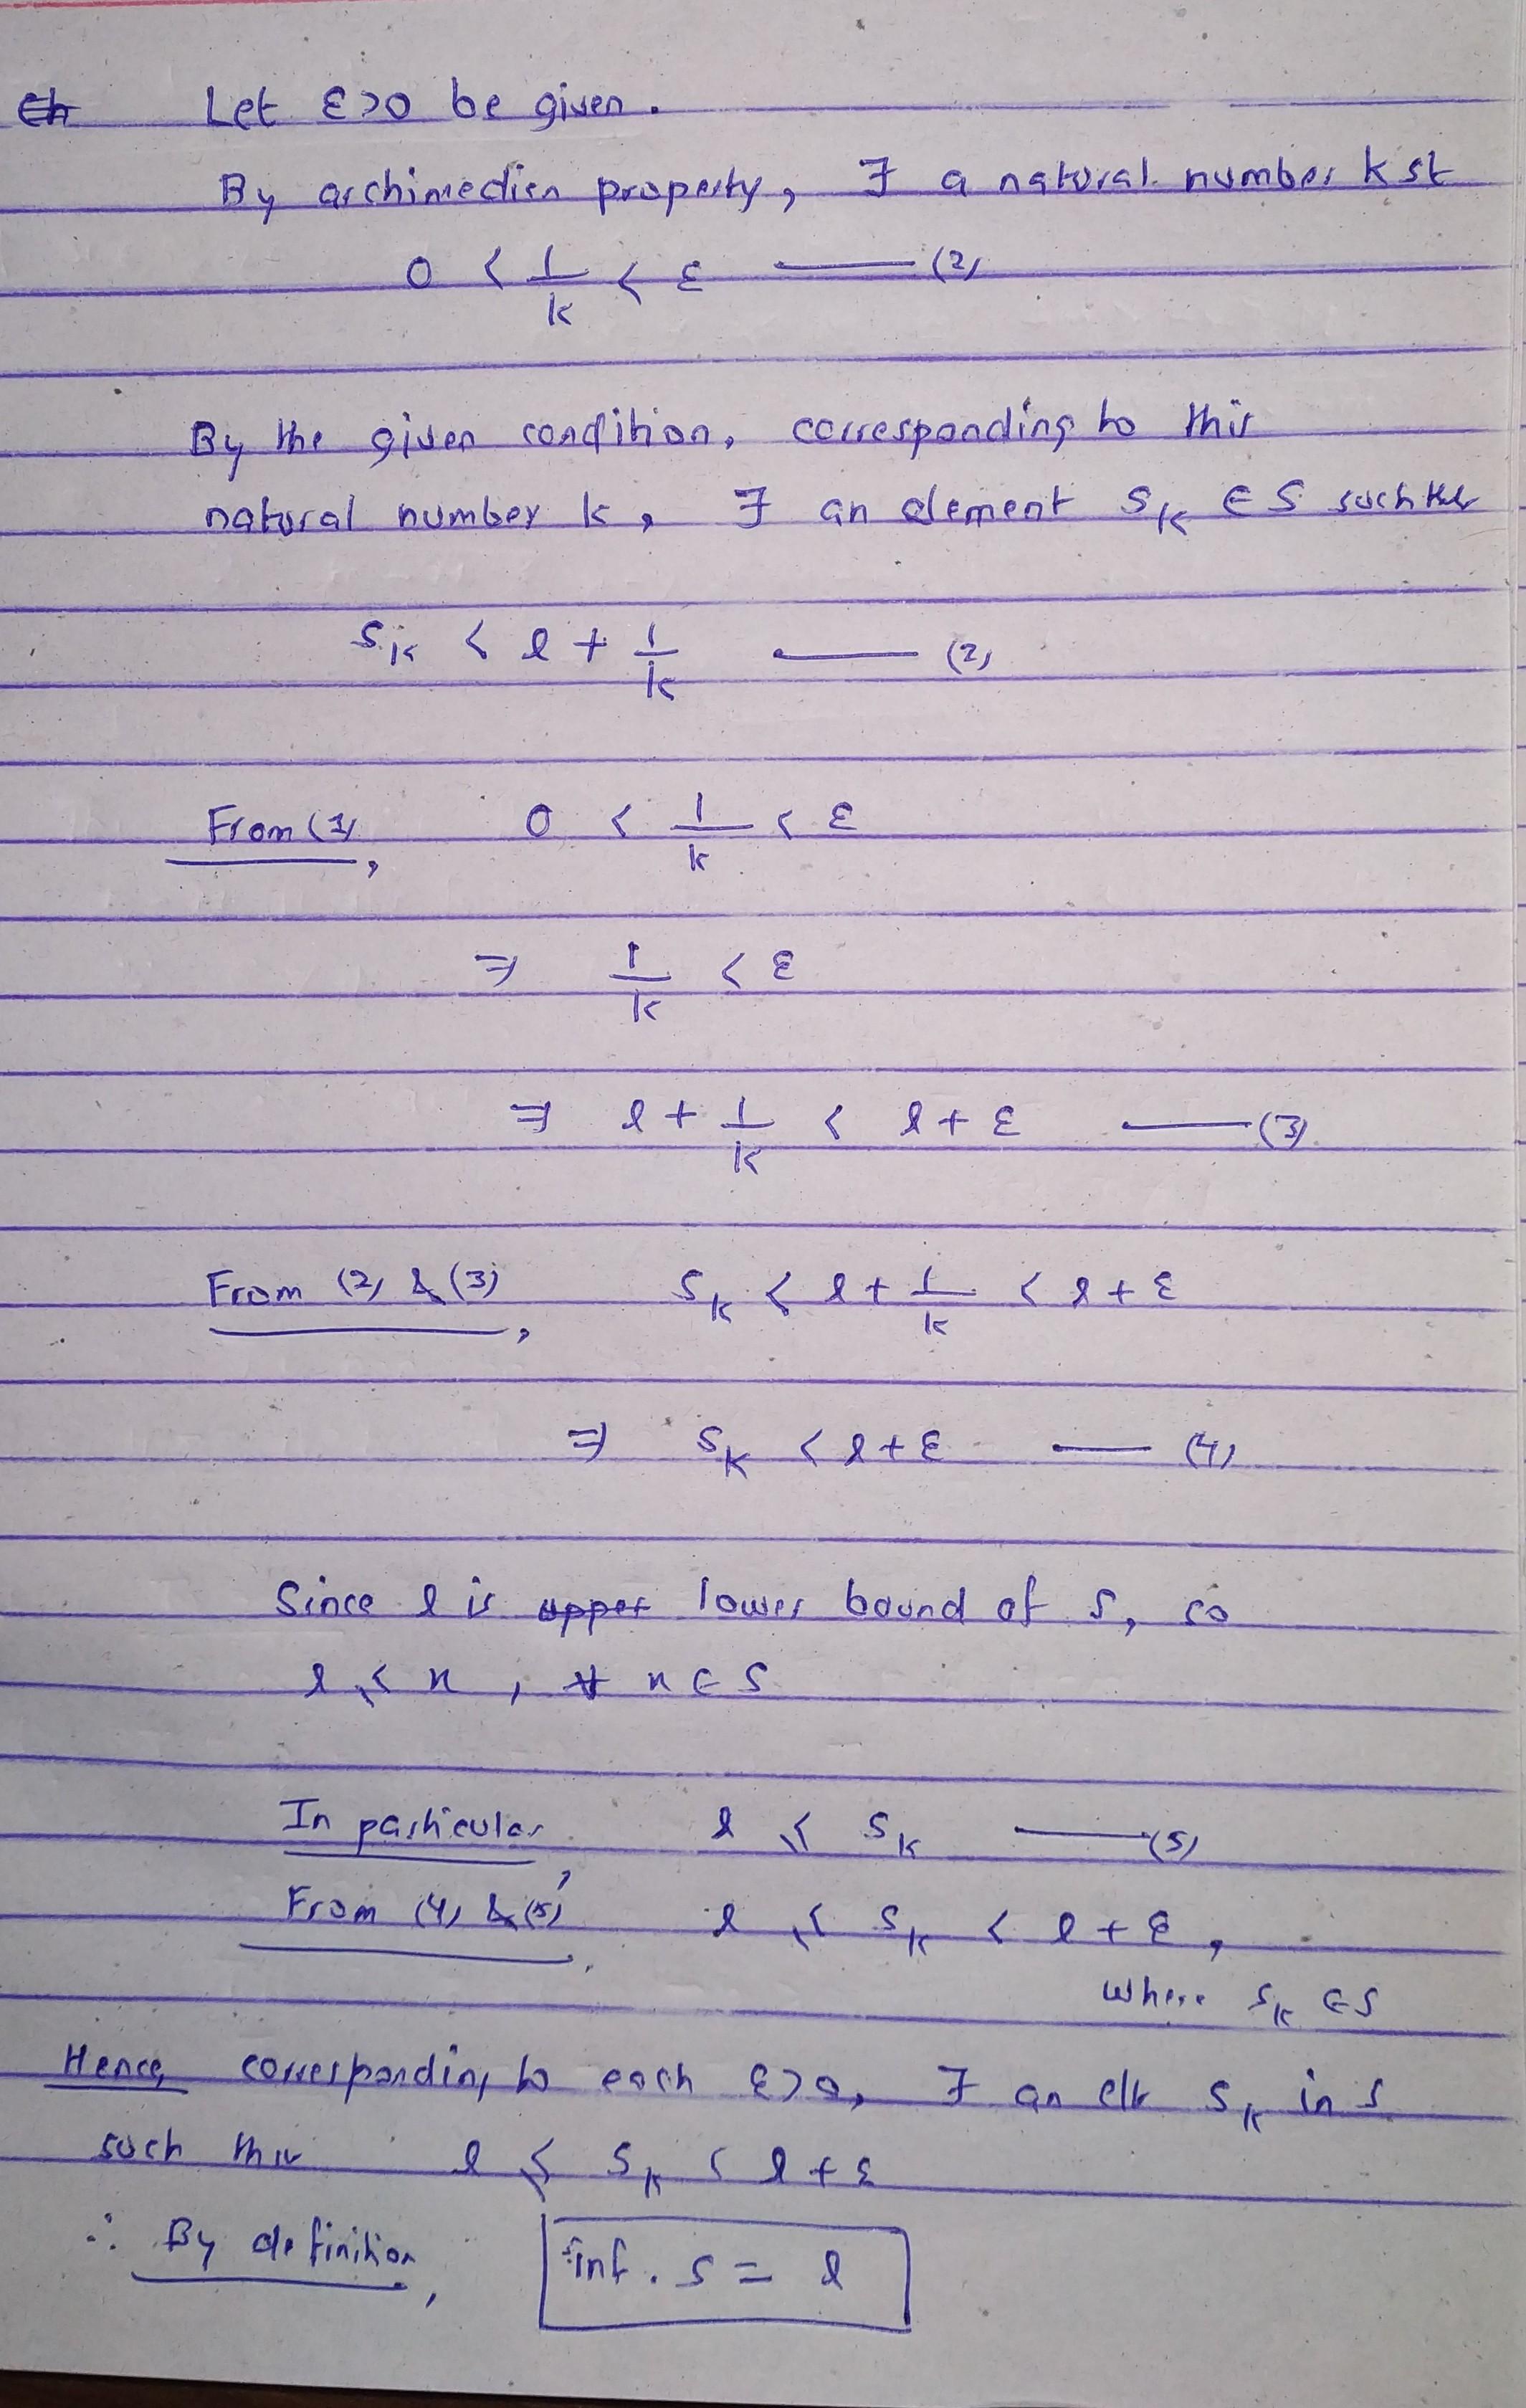 Let ε>0 be given.
By archimedien property, ∃ a natural number k st
0 < 1/k < ε —— (2)
By the given condition, corresponding to this
natural number k, ∃ an element S_k ∈ S such that
S_k < l + 1/k —— (2)
From (1), 0 < 1/k < ε
⇒ 1/k < ε
⇒ l + 1/k < l + ε —— (3)
From (2) & (3), S_k < l + 1/k < l + ε
⇒ S_k < l + ε —— (4)
Since l is upper lower bound of S, so
l ≤ x, ∀ x ∈ S
In particular, l ≤ S_k —— (5)
From (4) & (5), l ≤ S_k < l + ε,
where S_k ∈ S
Hence corresponding to each ε>0, ∃ an elt S_k in S
such that l ≤ S_k < l + ε
∴ By definition, inf. S = l